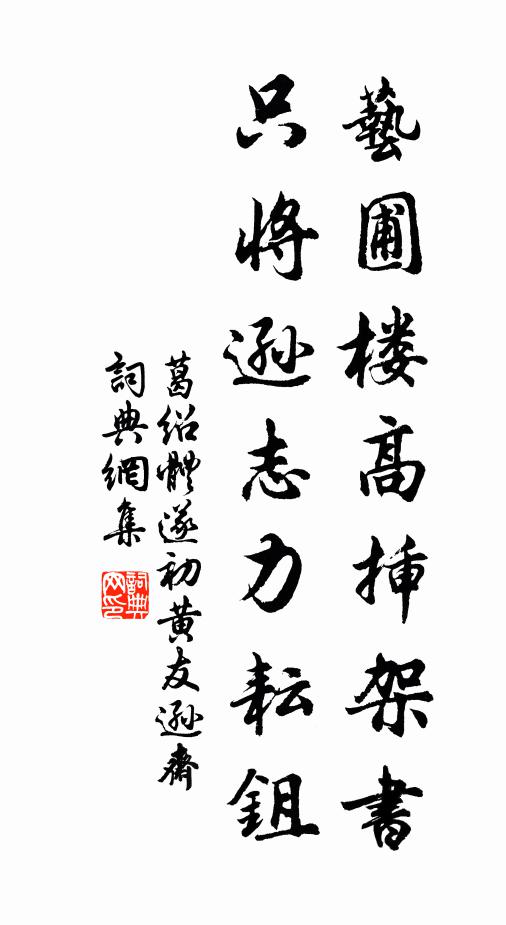 藝圃楼高揷架書
只將遜志力耘鉏
葛绍體遂初黄友遜齋
詞典網集
詞典网印